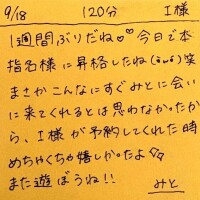 9/18 120分 I様
1週間ぶりだね♡♡今日で本
指名様に昇格したね(ˊωˋ)笑
まさかこんなにすぐみとに会い
に来てくれるとは思わなかったか
ら、I様が予約してくれた時
めちゃくちゃ嬉しかったよ♡♡
また遊ぼうね!!
みと